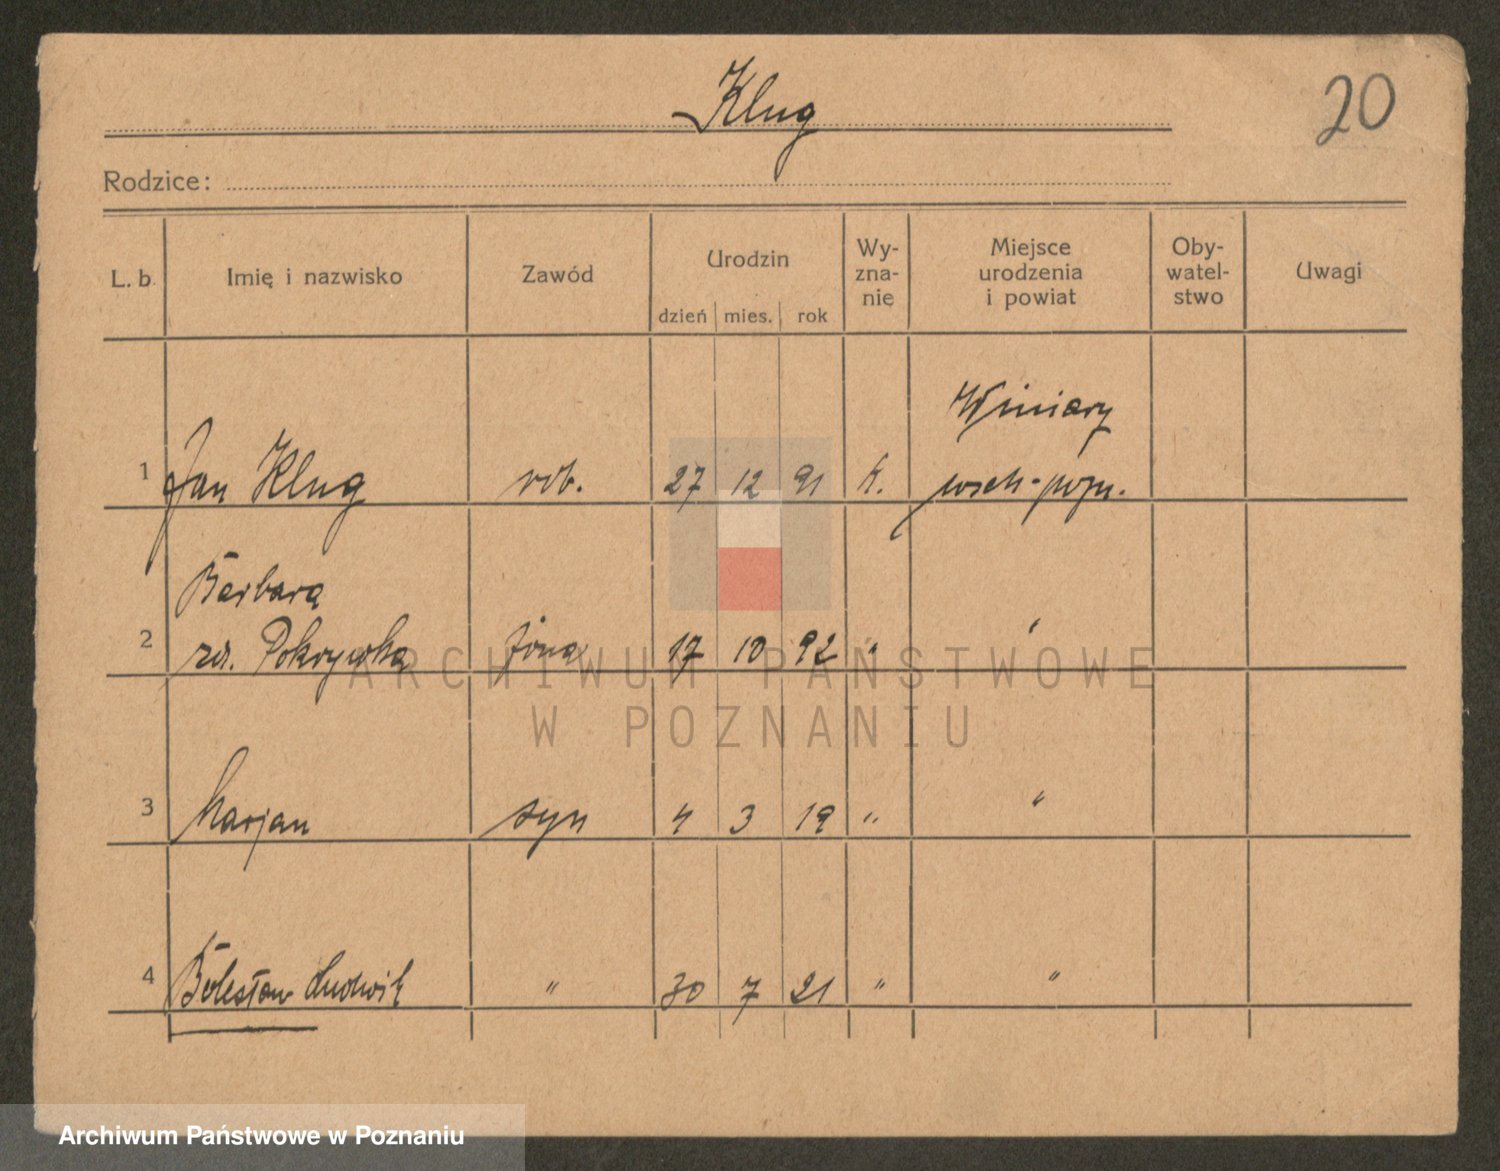 Klug
20
Rodzice:
L. b. Imię i nazwisko Zawód Urodzin dzień mies. rok Wy-zna-nie Miejsce urodzenia i powiat Oby-watel-stwo Uwagi
Winiary
1 Jan Klug rob. 27 12 91 k. wsch-pozn.
Barbara
2 zd. Pokrywka żona 17 10 92 " "
3 Marjan syn 4 3 19 " "
4 Bolesław Ludwik " 30 7 21 " "
ARCHIWUM PAŃSTWOWE
W POZNANIU
Archiwum Państwowe w Poznaniu